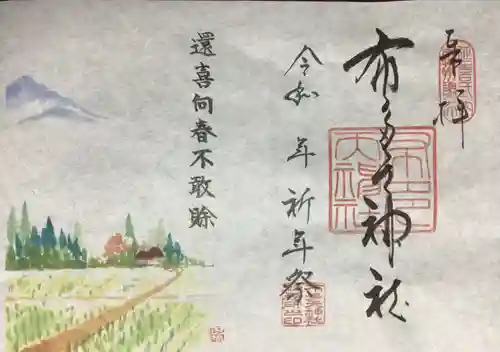 奉拝
布多天神社
令和 年 祈年祭
還喜向春不敢賒